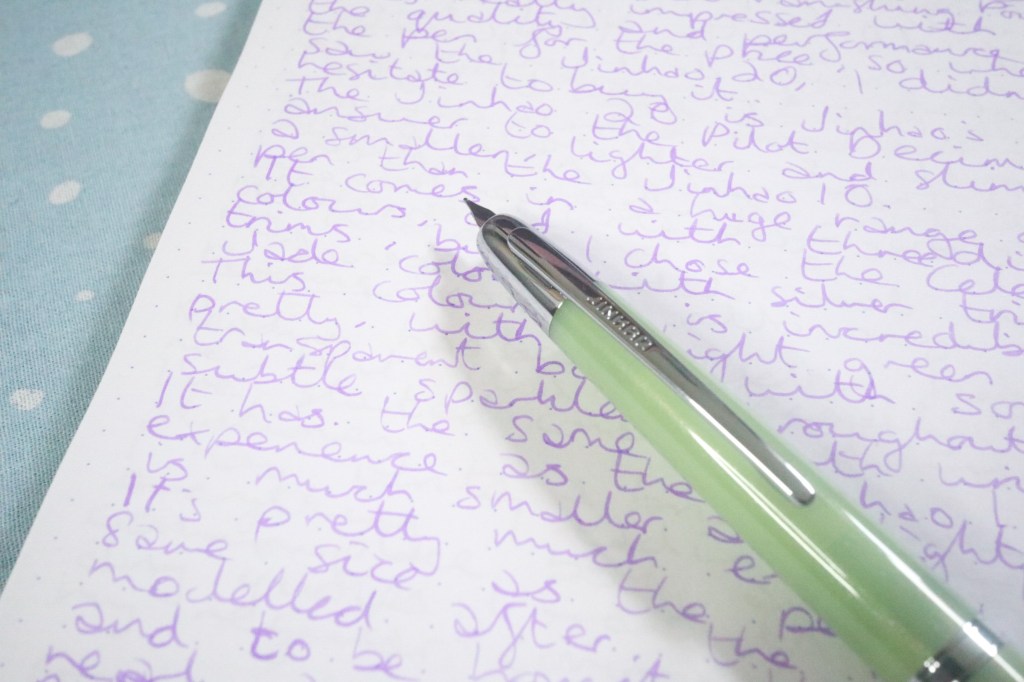 impressed with
the quality and performance
the pen for the price, so when
saw the Jinhao 20, I didn
hesitate to buy it.
The Jinhao 20 is Jinhao's
answer to the Pilot Decim
a smaller, lighter and slim
pen than the Jinhao 10.
It comes in a huge range
colours, with three di
trims, but I chose the Cela
Jade colour with silver tri
This colour is incredib
pretty, with light green
transparent with so
subtle sparkle roughout
It has the same
experience as the hao
is much smaller ight
It's pretty much
same size as the
modelled after
and to be the
JINHAO